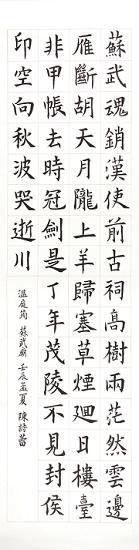 蘇武魂銷漢使前古祠高樹兩茫然雲邊
雁斷胡天月隴上羊歸塞草煙迴日樓臺
非甲帳去時冠劍是丁年茂陵不見封侯
印空向秋波哭逝川
溫庭筠 蘇武廟 壬辰孟夏 陳詩蕾